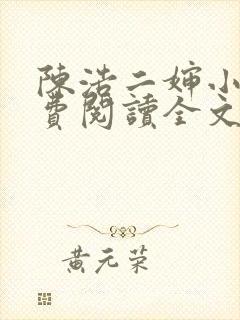 陳浩二嬸小
費閱讀全文
黃元荣